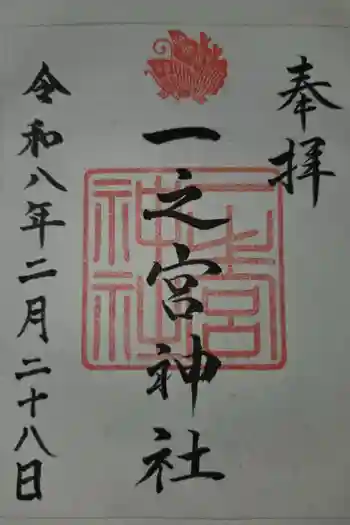 奉拝
一之宮神社
一之宮神社
令和八年二月二十八日